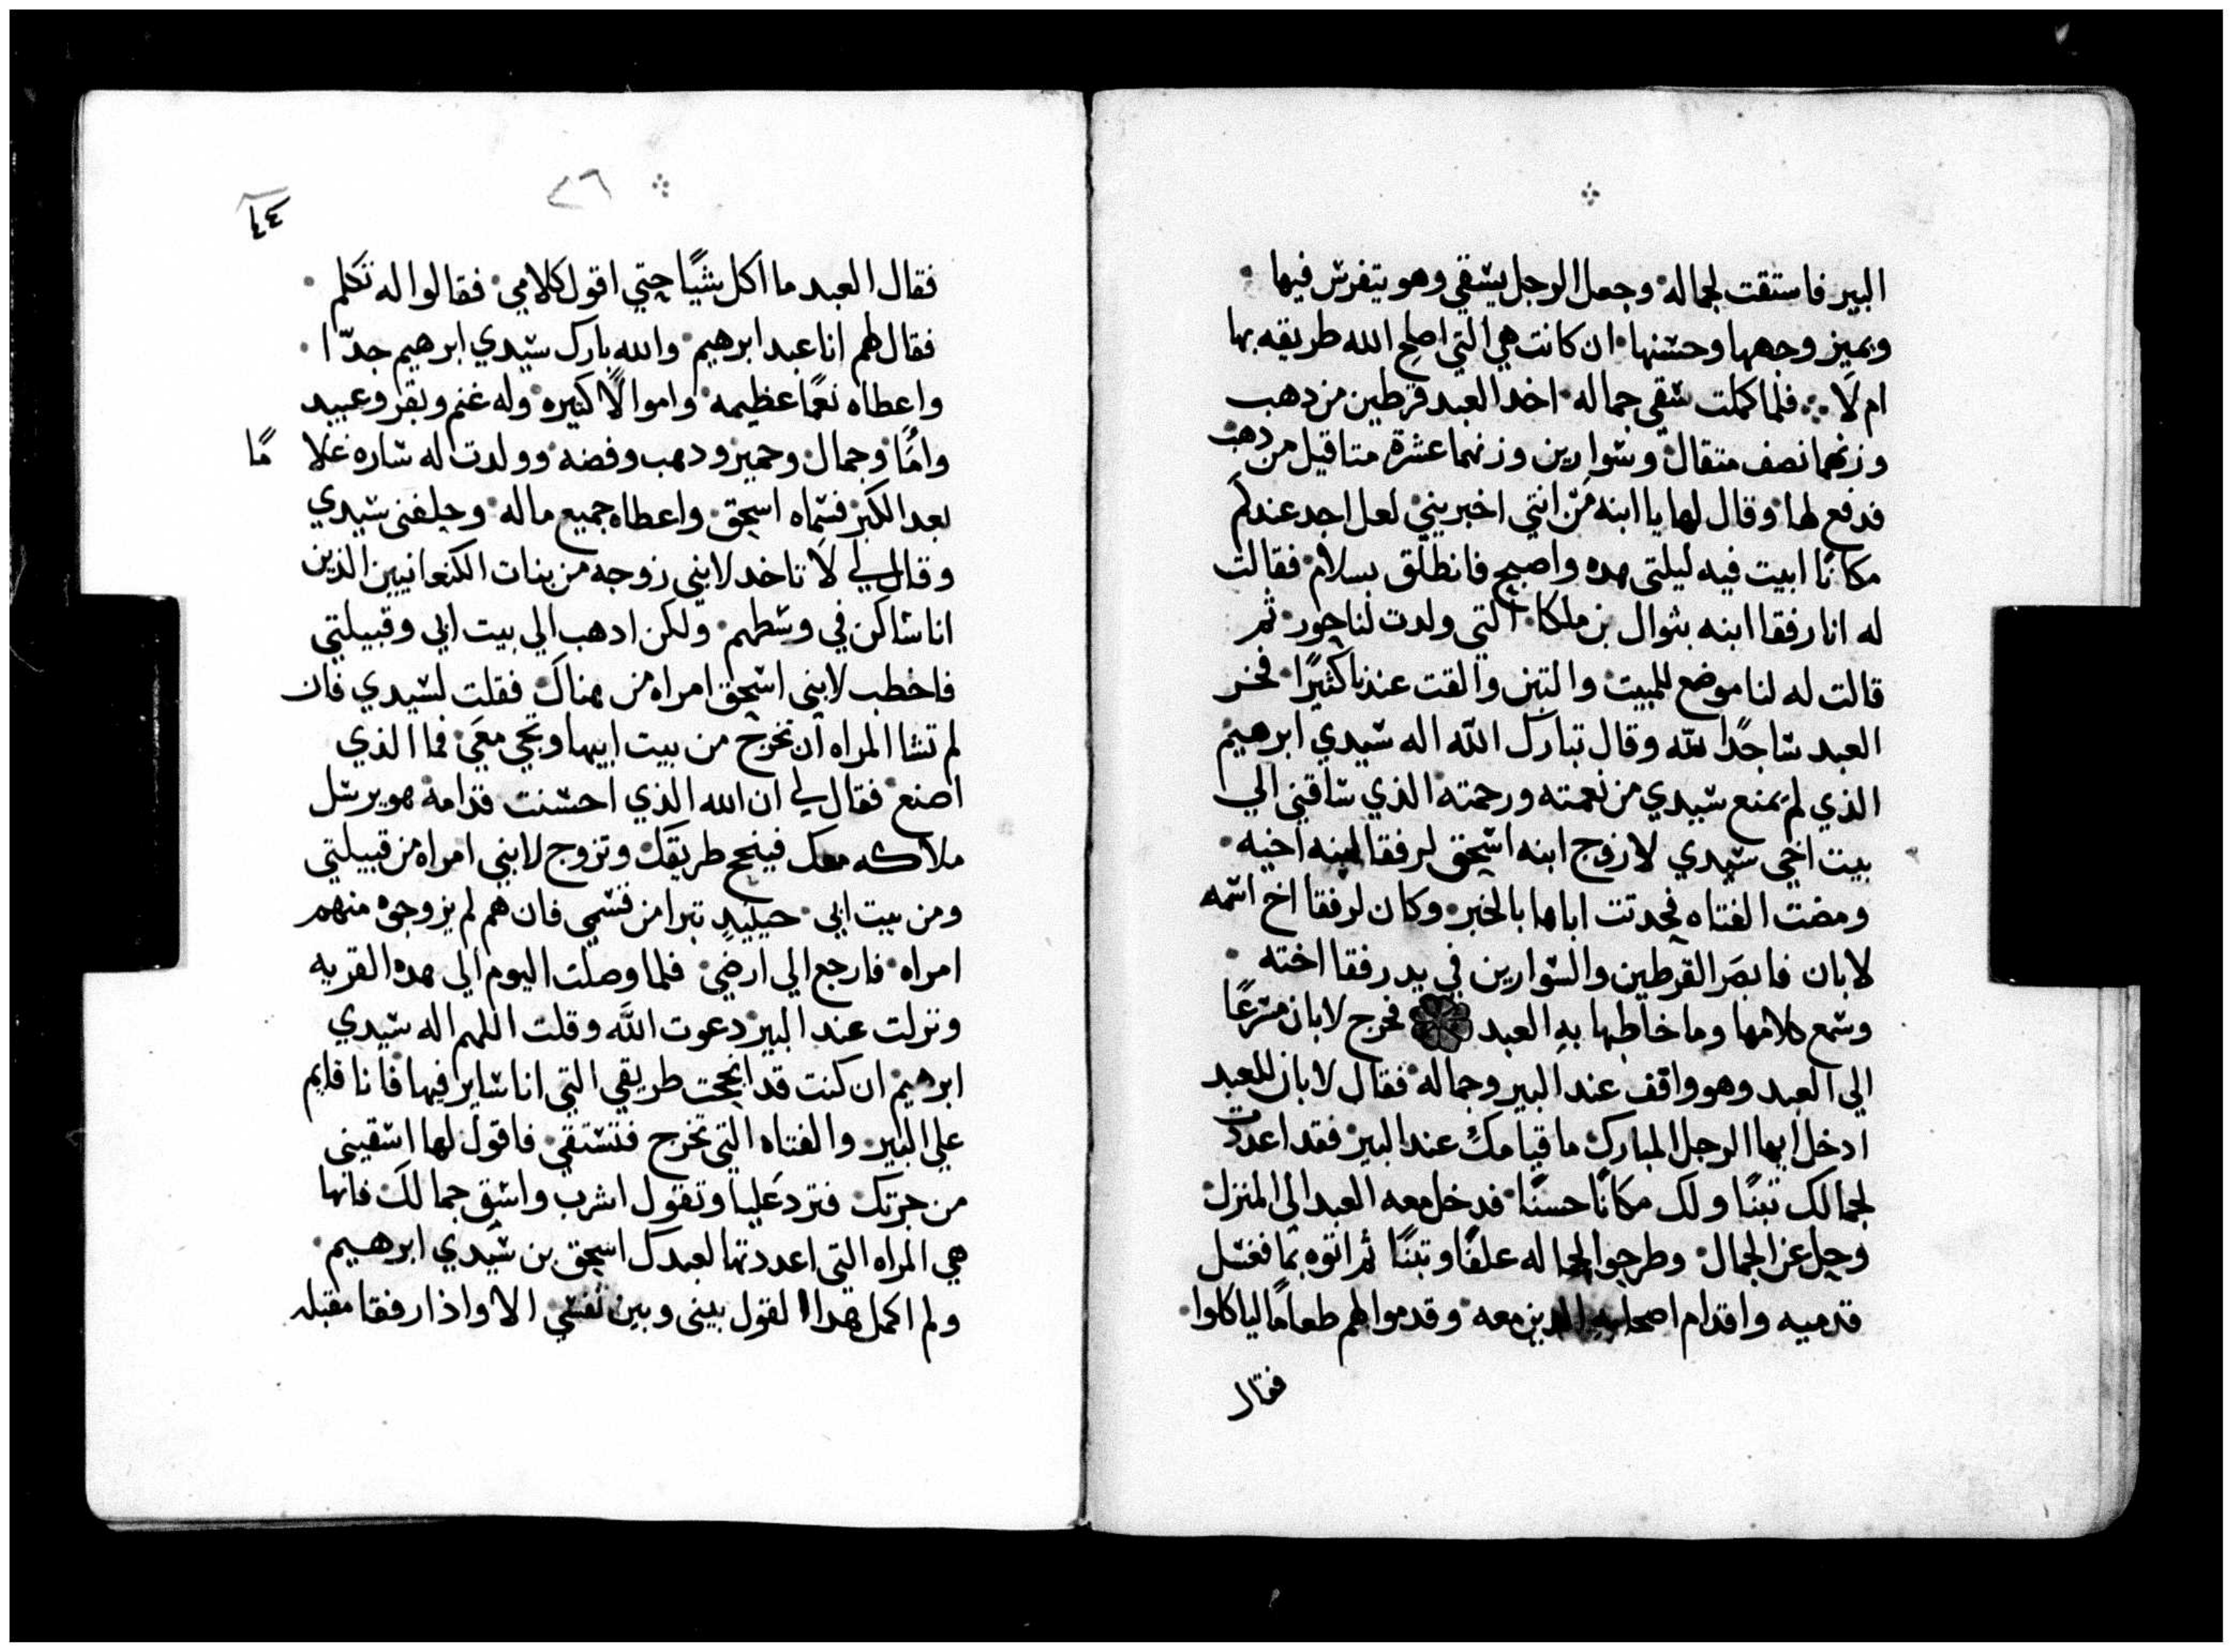 البير فاستقت لجماله وجعل الرجل يسقي وهو يتفرس فيها
ويميز وجهها وحسنها ان كانت هي التي اصلح الله طريقه بها
ام لا فلما كملت سقي جماله اخد العبد قرطين من دهب
وزنهما نصف متقال وسوارين وزنهما عشرة متاقيل من دهب
فدفع لها وقال لها يا ابنه من انتي اخبريني لعل احد عندكم
مكانًا ابيت فيه ليلتي هده واصبح فانطلق بسلام فقالت
له انا رفقا ابنه بتوال بن ملكا التي ولدت لناحور ثم
قالت له لنا موضع للمبيت والتبن والقت عندنا كثيرًا فخر
العبد ساجدًا لله وقال تبارك الله اله سيدي ابرهيم
الذي لم يمنع سيدي من نعمته ورحمته الذي ساقني الي
بيت اخي سيدي لازوج ابنه اسحق لرفقا ابنه اخيه
ومضت الفتاه فحدتت اباها بالخبر وكان لرفقا اخ اسمه
لابان فابصر القرطين والسوارين في يد رفقا اخته
وسمع كلامها وما خاطبها به العبد فخرج لابان مسرعًا
الي العبد وهو واقف عند البير وجماله فقال لابان للعبد
ادخل ايها الرجل المبارك ما قيامك عند البير فقد اعددت
لجمالك تبنًا ولك مكانًا حسنًا فدخل معه العبد الي المنزل
وحل عن الجمال وطرحوا لجماله علفًا وتبنًا ثم اتوه بما فغسل
قدميه واقدام اصحابه الدين معه وقدموا لهم طعامًا لياكلوا
فقال
٢٦
٤٤
فقال العبد ما اكل شيًا حتي اقول كلامي فقالوا له تكلم
فقال لهم انا عبد ابرهيم والله بارك سيدي ابرهيم جدّا
واعطاه نعمًا عظيمه واموالًا كتيره وله غنم وبقر وعبيد
وامًا وجمال وحمير ودهب وفضه وولدت له ساره غلا مًا
بعد الكبر فسماه اسحق واعطاه جميع ماله وحلفني سيدي
وقال لي لا تاخد لابني زوجه من بنات الكنعانيين الذين
انا ساكن في وسطهم ولكن ادهب الي بيت ابي وقبيلتي
فاخطب لابني اسحق امراه من هناك فقلت لسيدي فان
لم تشا المراه ان تخرج من بيت ابيها وتجي معي فما الذي
اصنع فقال لي ان الله الذي احسنت قدامه هو يرسل
ملاكه معك فينجح طريقك وتزوج لابني امراه من قبيلتي
ومن بيت ابي حينيدٍ تبرا من قسمي فان هم لم يزوجوه منهم
امراه فارجع الي ارضي فلما وصلت اليوم الي هده القريه
ونزلت عند البير دعوت الله وقلت اللهم اله سيدي
ابرهيم ان كنت قد انجحت طريقي التي انا ساير فيها فانا قايم
علي البير والفتاه التي تخرج فتستقي فاقول لها اسقيني
من جرتك فترد عليا وتقول اشرب واسق جمالك فانها
هي المراه التي اعددتها لعبدك اسحق بن سيدي ابرهيم
ولم اكمل هدا القول بيني وبين نفسي الا واذا رفقا مقبله